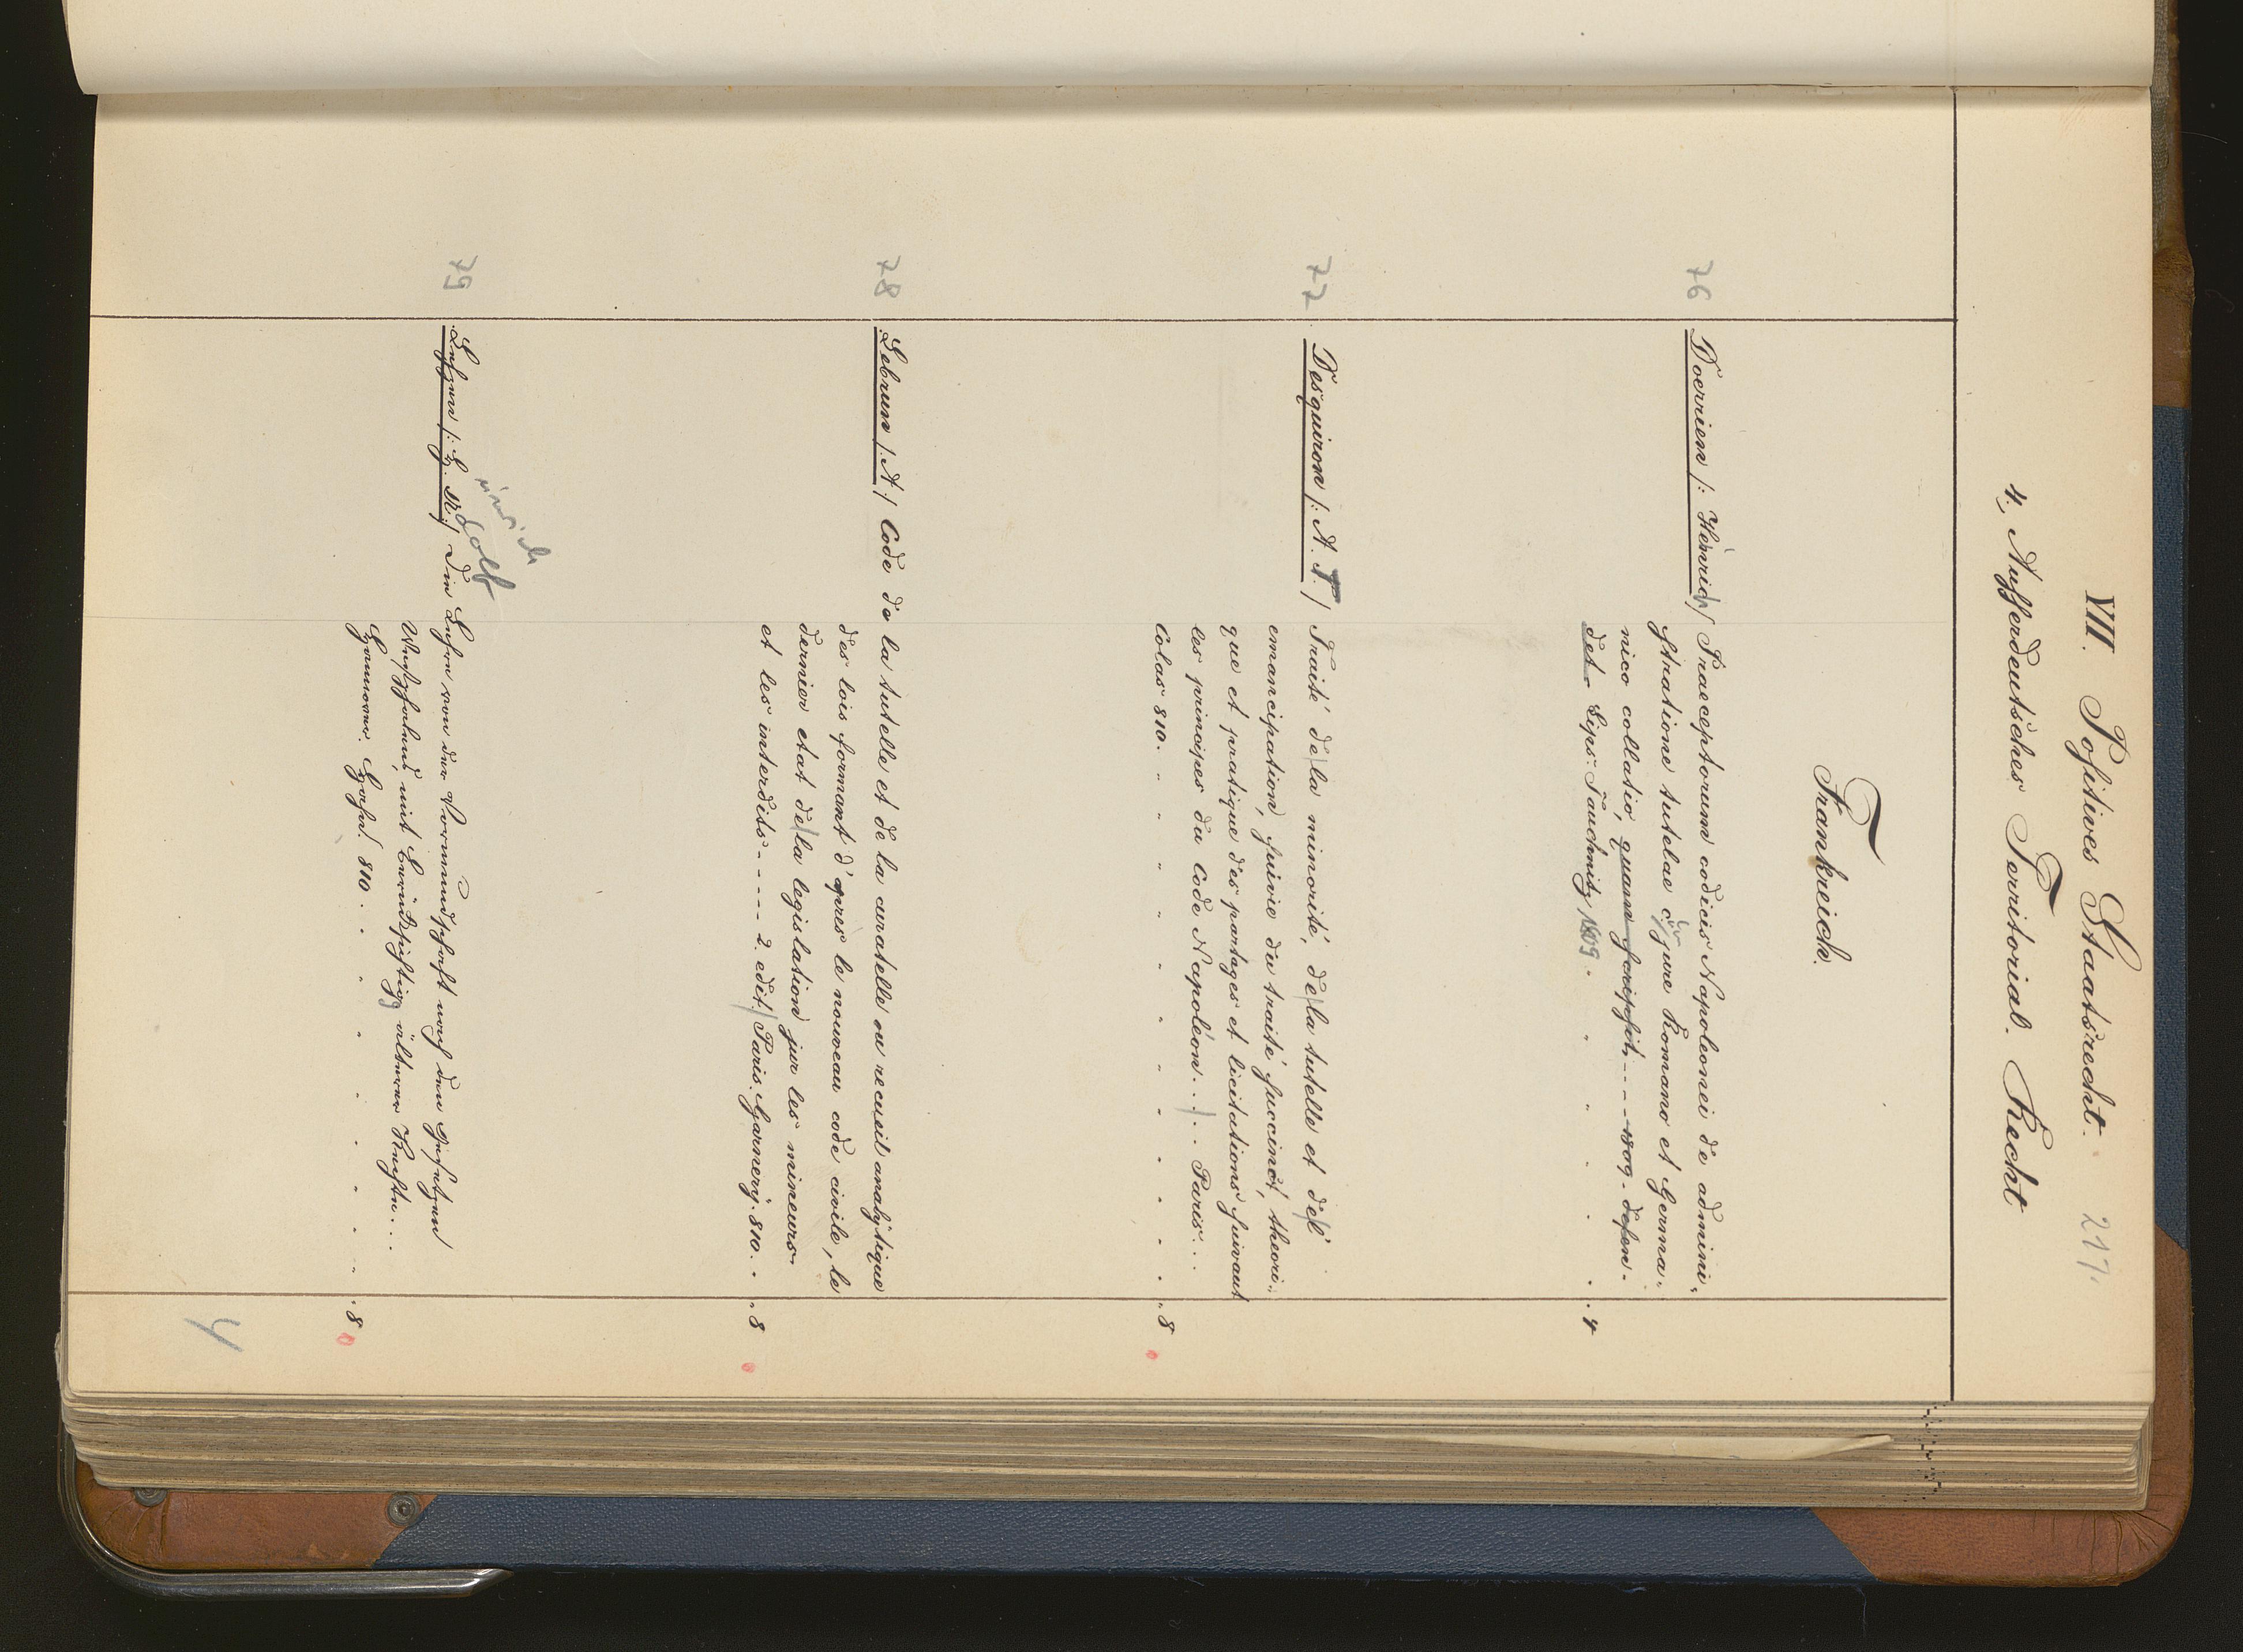 VII. Positives Staatsrecht. 217.
4, Ausserdeutsches Territorial. Recht
Frankreich.
76 Doerrien /: Henrich/ Praeceptorum codicis Napoleonei de admini-
stratione tutelae c jure Romano et Germa-
nico collatio, quam scripsit, - - - - 1809 - defen-
det - Lips. Tauchnitz 1809 . . 4
77 Desquiron /: A. T. / Traité de|la minorité, de|la tutelle et de|l'
emancipation, suivie du traité succinct, theori-
que et pratique des partages et licitations suivant
les principes du Code Napoléon. . .| . . Paris. . .
Colas 810. . 8
78 Lebrun /: A / Code de la tutelle et de la curatelle ou recueil analytique
des lois formant d'après le nouveau code civile, le
dernier etat de|la legislation sur les mineurs
et les interdits - - - - 2. edit.| Paris. Garnery. 810. . 8
79 Lehzen /: H. W. / Die Lehre von der Vormundschaft nach den Gesetzen
Westphalens, mit Berücksichtig älterer Rechte. . .
Hannover. Hahn. 810. . 8
4